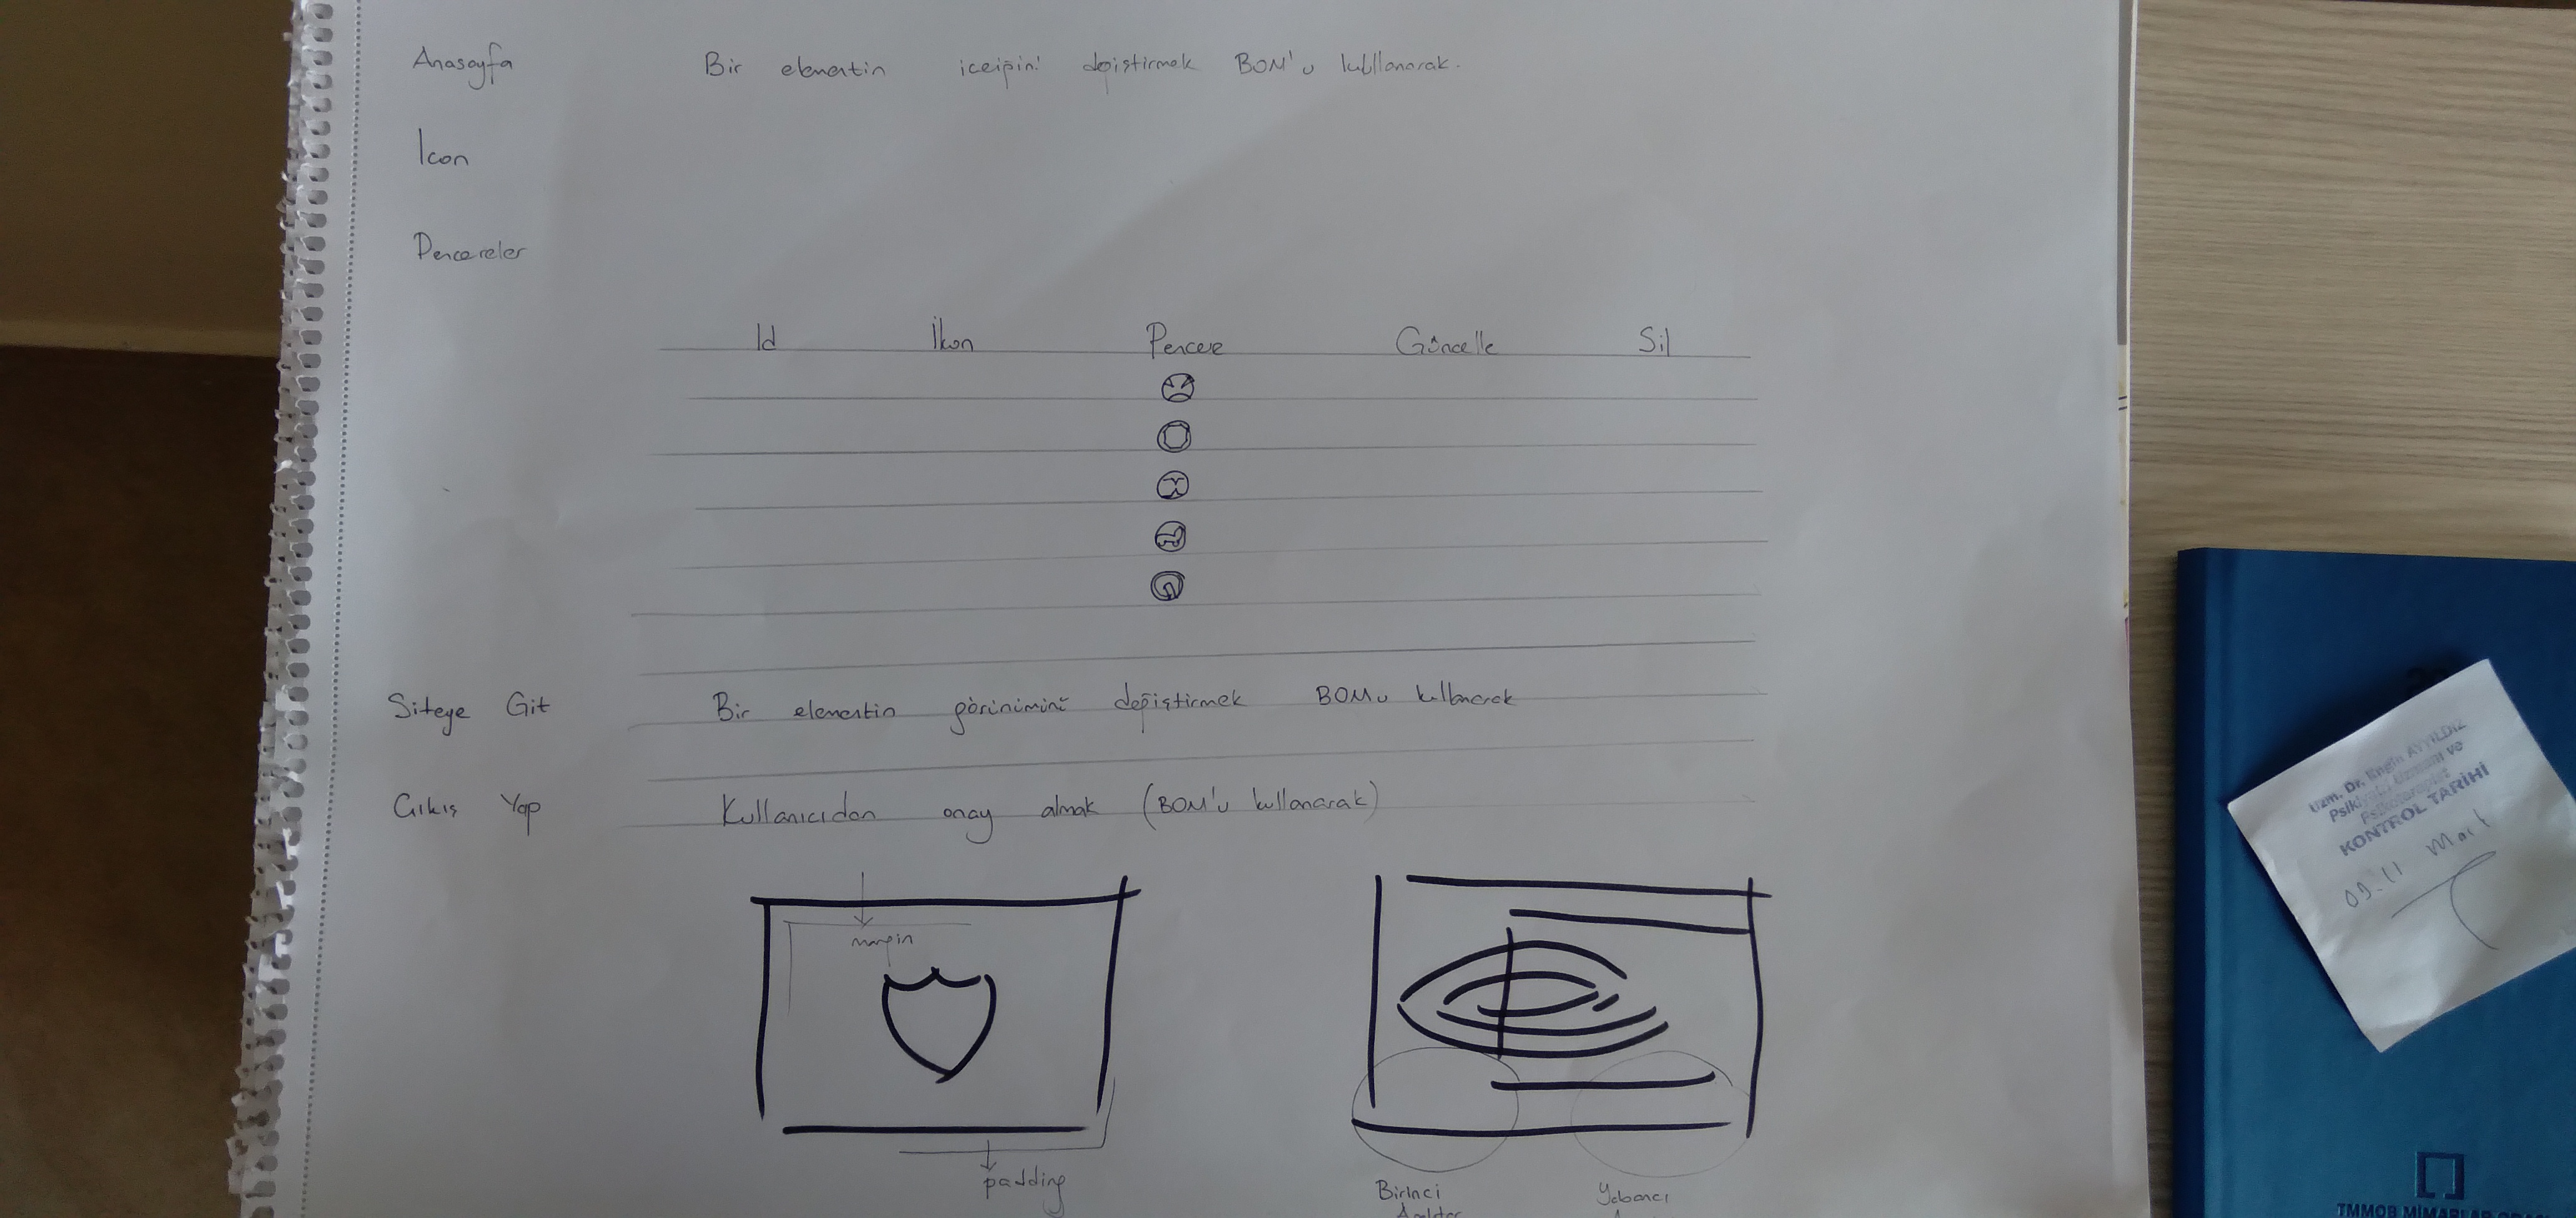 Anasayfa Bir elementin iceiğini değistirmek BOM'u kullanarak.
Icon
Pencereler
Id İkon Pencere Güncelle Sil
Siteye Git Bir elementin görünimini değiştirmek BOMu kullanarak
Cıkış Yap Kullanıcıdan onay almak (BOM'u kullanarak)
margin
padding
Birinci Yabancı
Uzm. Dr. Engin AYYILDIZ
Psikiyatri Uzmanı ve
Psikoterapist
KONTROL TARİHİ
09.11 Mart
TMMOB MİMARLAR ODASI